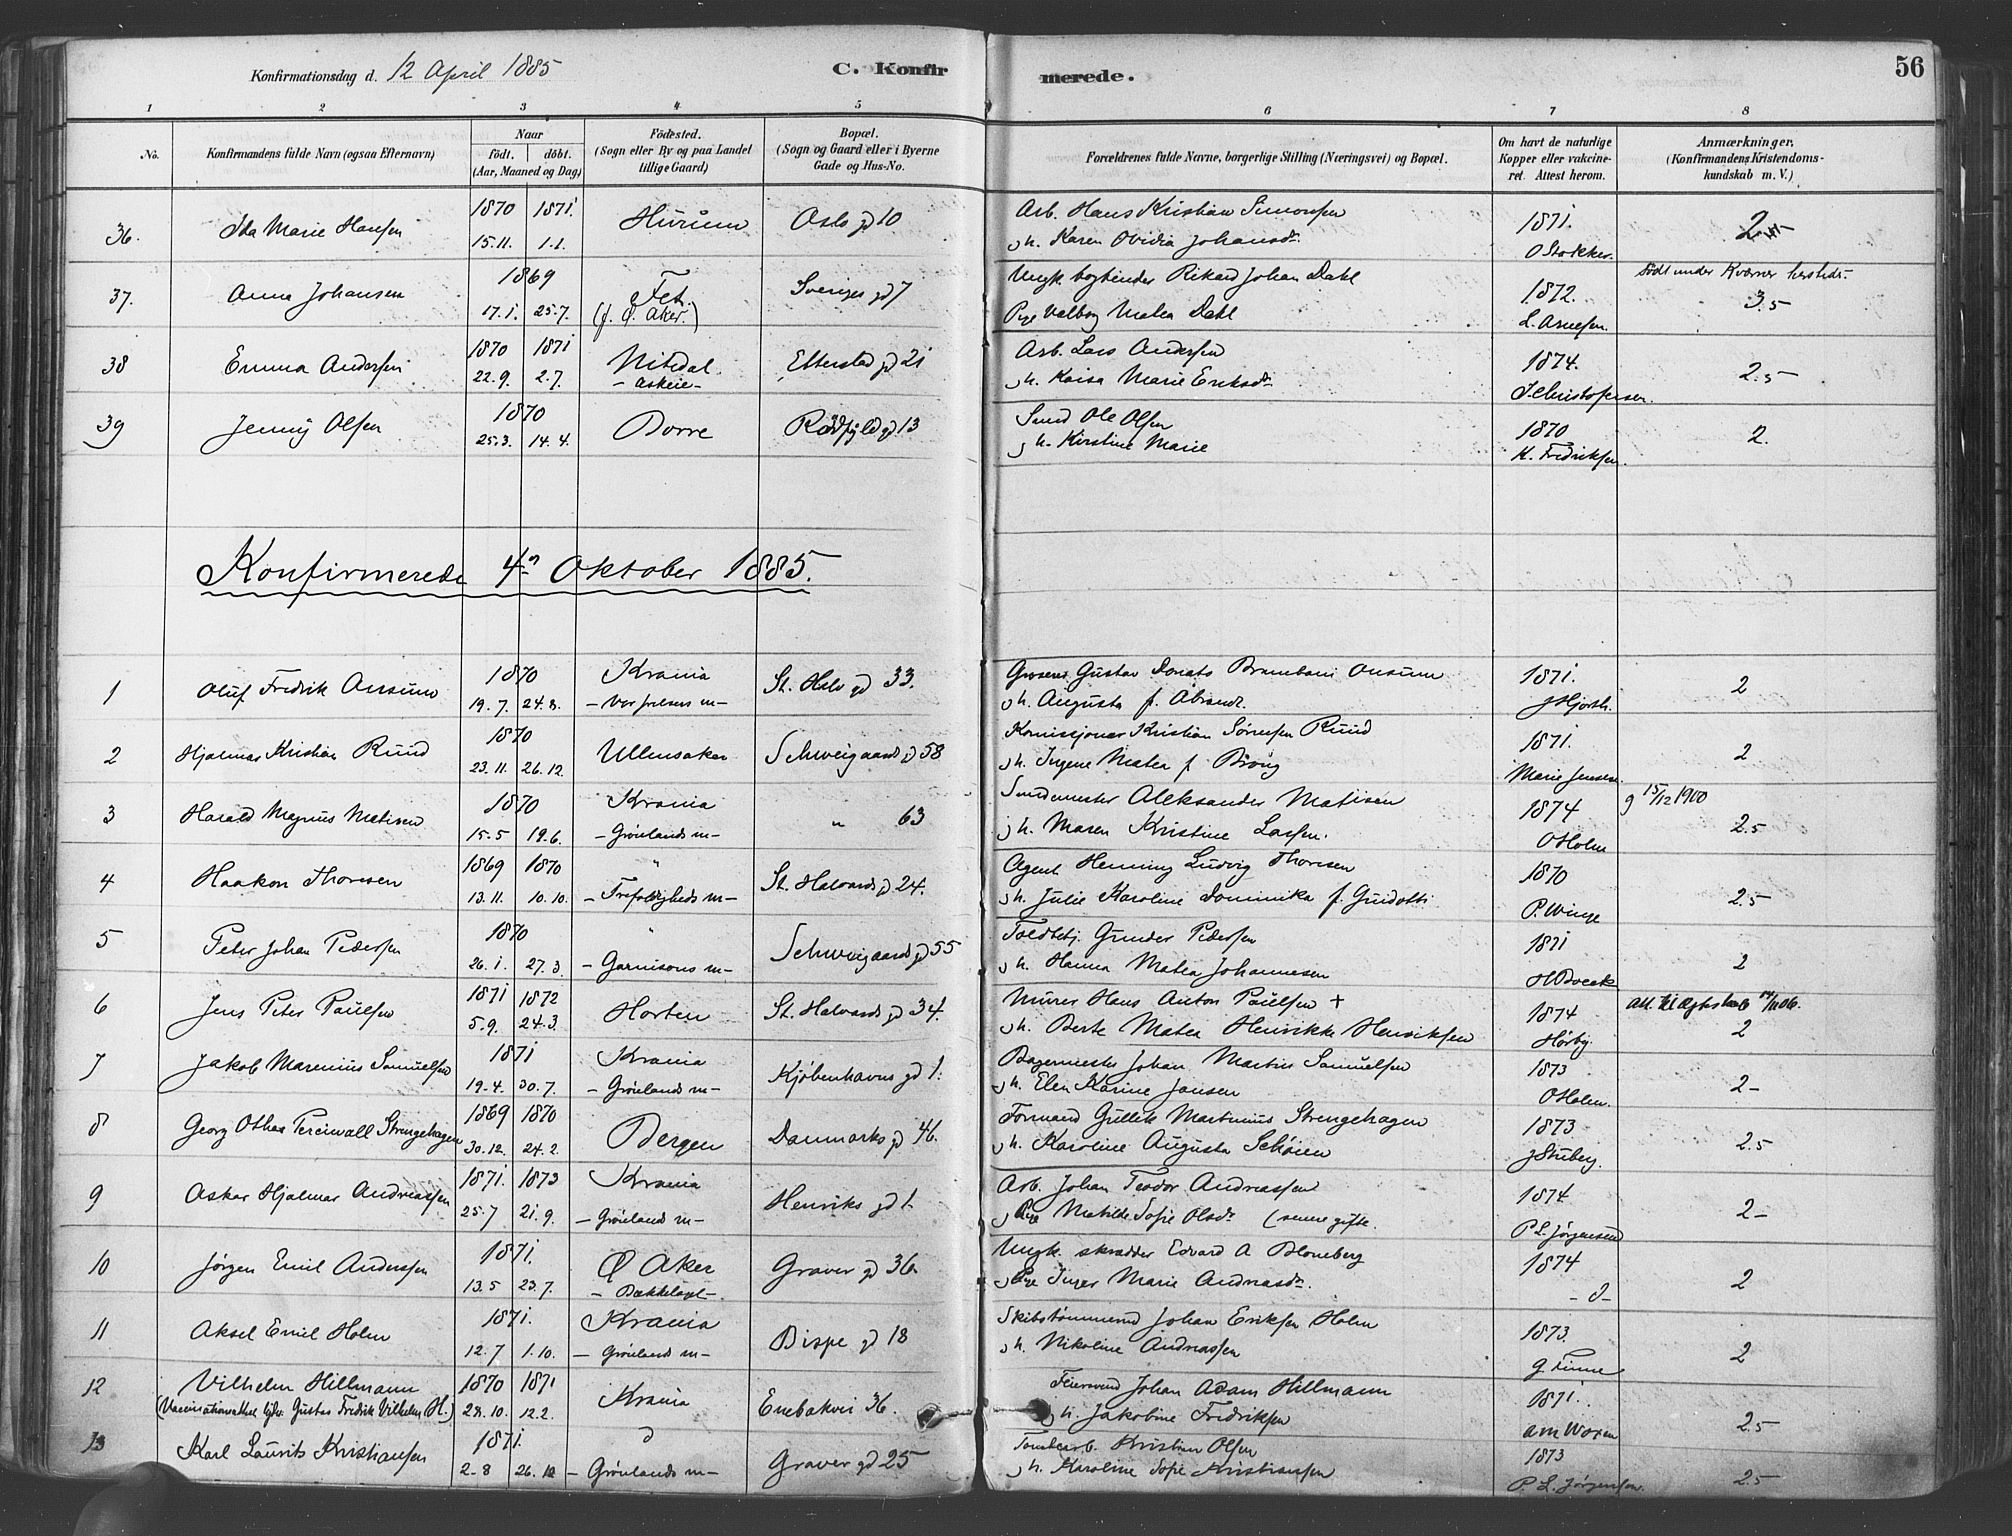 Konfirmationsdag d. 12 April 1885 C. Konfirmerede. 56
1 2 3 4 5 6 7 8
No. Konfirmandens fulde Navn (ogsaa Efternavn) Naar født. døbt. (Aar, Maaned og Dag) Fødested. (Sogn eller By og paa Landet tillige Gaard) Bopæl. (Sogn og Gaard eller i Byerne Gade og Hus-No. Forældrenes fulde Navne, borgerlige Stilling (Næringsvei) og Bopæl. Om havt de naturlige Kopper eller vakcineret. Attest herom. Anmærkninger. (Konfirmandens Kristendomskundskab m. V.)
36. Ida Marie Hansen 1870 1871. 15.11. 1.1. Hurum Oslo gd 10 Arb. Hans Kristian Simonsen 1871.
h. Karen Ovidia Johansdr. O Stokker.
37. Anna Johansen 1869 17.1. 25.7. Fet. (f. Ø. Aker.) Sveriges gd 7 Ungk. bogbinder Rikard Johan Dahl 1872. født under Kværner
Pige Valborg Matea Dahl L. Arnesen. 3.5
38 Emma Andersen 1870 1871 22.9. 2.7. Nitedal Etterstad gd 21 Arb. Lars Andersen 1874. 2.5
h. Kaisa Marie Eriksdr.
39 Jenny Olsen 1870 25.3. 14.4. Borre Rødfyld gd 13 Smed Ole Olsen 1870 2.
h. Kirstine Marie K. Fredriksen.
Konfirmerede 4n Oktober 1885.
1 Oluf Fredrik Onsum 1870 19.7. 24.8. Krania – Vor frelsers m – St. Halv gd 33. Gustav Donato Brambani Onsum 1871. 2
h. Augusta f. Abrandt. J Hjorth.
2 Hjalmar Kristian Ruud 1870 23.11. 26.12. Ullensaker Schweigaards gd 58 Komissjonær Kristian Sørensen Ruud 1871. 2
h. Ingene Matea f. Marie Jensen.
3 Harald Magnus Matisen 1870 15.5 19.6. Krania – Grønlands m – " 63 Smedemester Aleksander Matisen 1874 15/12 1900
h. Maren Kristine Larsen. O Holm 2.5
4 Haakon Thoresen 1869 1870 13.11. 10.10. " – Trefoldigheds m – St. Halvards gd 24. Agent Henning Ludvig Thoresen 1870 2.5
h. Julie Karoline Dominika f. Guidotti P. Winge
5 Peter Johan Pedersen 1870 26.1. 27.3. " – Garnisons m – Schweigaards gd 55 Toldbetj. Gunder Pedersen 1871 2
h. Hanna Matea Johannesen
6 Jens Peter Paulsen 1871 1872 5.9. 24.3. Horten St. Halvards gd 34. Murer Hans Anton Paulsen + 1874
h. Berte Matea Henrikke Henriksen Hørby. 2
7 Jakob Marenius Samuelsen 1871 19.4. 30.7. Krania – Grønlands m – Kjøbenhavns gd 1. Bagermester Johan Martin Samuelsen 1873 2 –
h. Elen Karine Jansen O Holm.
8 Georg Othar Perciwall Strengehagen 1869 1870 30.12. 24.2. Bergen Danmarks gd 46. Formand Gullik Martinius Strengehagen 1873 2.5
h. Karoline Augusta Schøien
9 Askar Hjalmar Andreassen 1871. 1873 25.7 21.9. Krania – Grønlands m – Henriks gd 1. Arb. Johan Teodor Andreassen 1874. 2 –
Pige Matilde Sofie Olsdr (senere gifte. P. L. Jørgensen
10 Jørgen Emil Anderssen 1871. 13.5 23.7. Ø Aker – Bækkelaget – Graver gd 36. Ungk. skrædder Edvard A Blomberg 1874 2
Pige Inger Marie Andreasdr. – d –
11 Aksel Emil Holm 1871. 12.7 1.10. Krania – Grønlands m – Bispe gd 18 Skibstømmermd Johan Eriksen Holm 1873. 2
h. Nikoline Andreassen G Finne
12 Vilhelm Hillmann 1870 1871 28.10. 12.2. Krania Enebakvei 36. Feiersvend Johan Adam Hillmann 1871.
(Vaccinationsattest lyder Gustav Fredrik Vilhelm H.) h. Jakobine Fredriksen 2.5
13 Karl Laurits Kristiansen 1871. 2.8 26. d – Grønlands m – Graver gd 25 Tomtearb. Kristian Olsen 1873 2.5
h. Karoline Sofie Kristiansen P. L. Jørgensen.